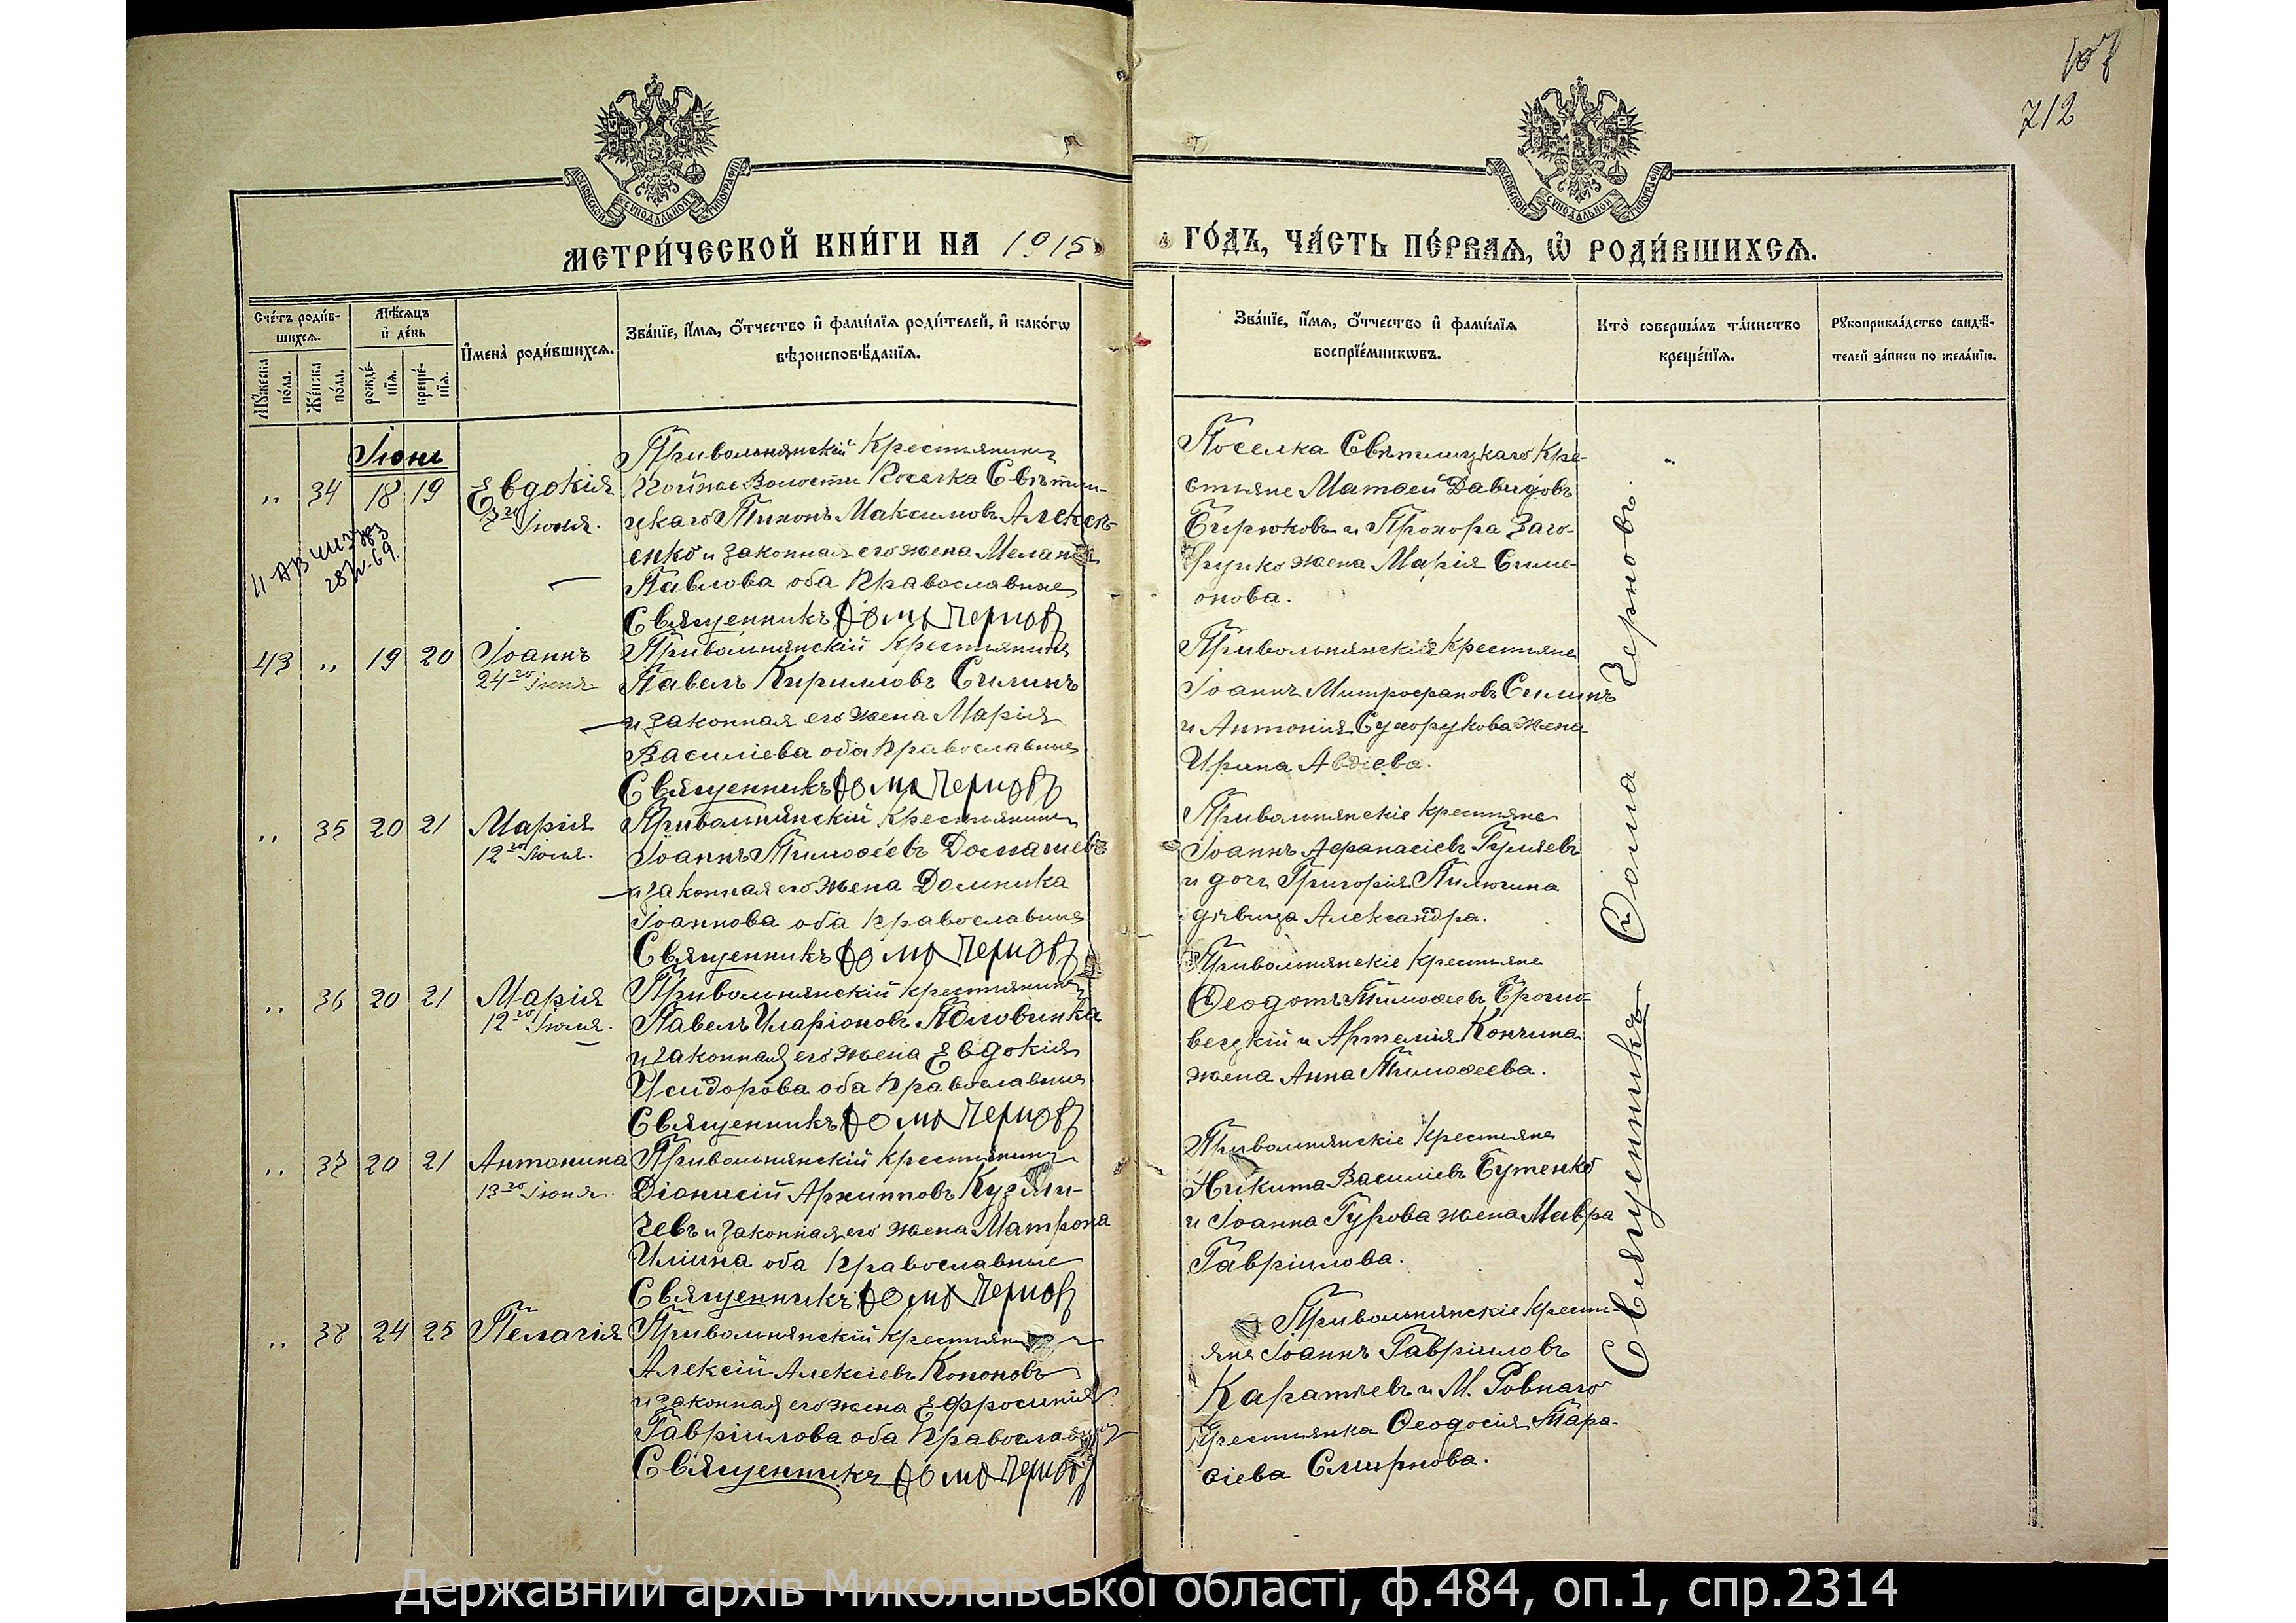 107
712
МОСКОВСКОЙ СУНОДАЛЬНОЙ ТИПОГРАФІИ
МОСКОВСКОЙ СУНОДАЛЬНОЙ ТИПОГРАФІИ
МЕТРИ́ЧЕСКОЙ КНИ́ГИ НА 1915
ГО́ДЪ, ЧА́СТЬ ПЕ́РВАѦ, Ѽ РОДИ́ВШИХСѦ.
Сче́тъ роди́в-
шихсѧ.
Мꙋ́жеска по́ла.
Же́нска по́ла.
Мѣ́сѧцъ
и҆ де́нь
рожде́-
нїѧ.
креще́-
нїѧ.
И҆мена̀ роди́вшихсѧ.
Зва́нїе, и҆́мѧ, ѻ҆́тчество и҆ фами́лїѧ роди́телей, и҆ како́гѡ
вѣроисповѣ́данїѧ.
Зва́нїе, и҆́мѧ, ѻ҆́тчество и҆ фами́лїѧ
воспрїе́мникѡвъ.
Кто̀ соверша́лъ та́инство
креще́нїѧ.
Рꙋкоприкла́дство свидѣ́-
телей за́писи по жела́нїю.
Іюнь
„ 34 18 19 Евдокія
Іюня.
28/
69.
Привольнянскій Крестьянинъ
Той же Волости Поселка Свѣтли-
цкаго Тихонъ Максимовъ Алексѣ-
енко и законная его жена Меланія
Павлова оба Православные
Священникъ Ѳома Черновъ
Поселка Свѣтлицкаго Кре-
стьяне Матѳей Давидовъ
Бирюковъ и Прохора Заго-
рулко жена Марія Симе-
онова.
43 „ 19 20 Іоаннъ
24го Іюня
Привольнянскій Крестьянинъ
Павелъ Кирилловъ Силинъ
и законная его жена Марія
Василіева оба Православные
Священникъ Ѳома Черновъ
Привольнянскіе Крестьяне
Іоаннъ Митрофановъ Силинъ
и Антонія Сухорукова жена
Ирина Авдіева.
„ 35 20 21 Марія
12го Іюля.
Привольнянскій Крестьянинъ
Іоаннъ Тимоѳеевъ Домашевъ
и законная его жена Домника
Іоаннова оба Православные
Священникъ Ѳома Черновъ
Привольнянскіе Крестьяне
Іоаннъ Аѳанасіевъ Гуляевъ
и дочь Григорія Пилюгина
дѣвица Александра.
„ 36 20 21 Марія
12го Іюля.
Привольнянскій крестьянинъ
Павелъ Иларіоновъ Половинка
и законная его жена Евдокія
Исидорова оба Православные
Священникъ Ѳома Черновъ
Привольнянскіе Крестьяне
Ѳеодотъ Тимоѳеевъ
вецкій и Артемія Кончина
жена Анна Тимоѳеева.
„ 37 20 21 Антонина
13го Іюня.
Привольнянскій Крестьянинъ
Діонисій Архипповъ Кузми-
чевъ и законная его жена Матрона
Илiина оба Православные
Священникъ Ѳома Черновъ
Привольнянскіе Крестьяне
Никита Василіевъ Бутенко
и Іоанна Гурова жена Мавра
Гавріилова.
„ 38 24 25 Пелагія
Привольнянскій крестьянинъ
Алексій Алексіевъ Кононовъ
и законная его жена Ефросинія
Гавріилова оба Православные
Священникъ Ѳома Черновъ
Привольнянскіе Крестья-
яне Іоаннъ Гавріиловъ
Каратѣевъ и М. Ровнаго
Крестьянка Ѳеодосія Тара-
сіева Смирнова.
Священникъ Ѳома Черновъ.
Державний архів Миколаївської області, ф.484, оп.1, спр.2314